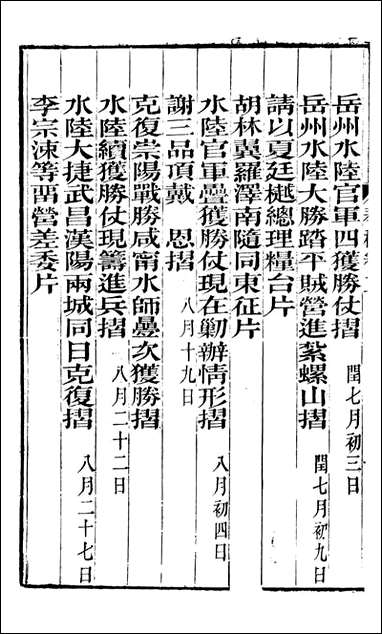 岳州水陸官軍四獲勝仗摺 閏七月初三日
岳州水陸大勝踏平賊營進紮螺山摺 閏七月初九日
請以夏廷樾總理糧台片
胡林翼羅澤南隨同東征片
水陸官軍疊獲勝仗現在剿辦情形摺 八月初四日
謝三品頂戴 恩摺 八月十九日
克復崇陽戰勝咸甯水師疊次獲勝摺
水陸續獲勝仗現籌進兵摺 八月二十二日
水陸大捷武昌漢陽兩城同日克復摺 八月二十七日
李宗涑等留營差委片